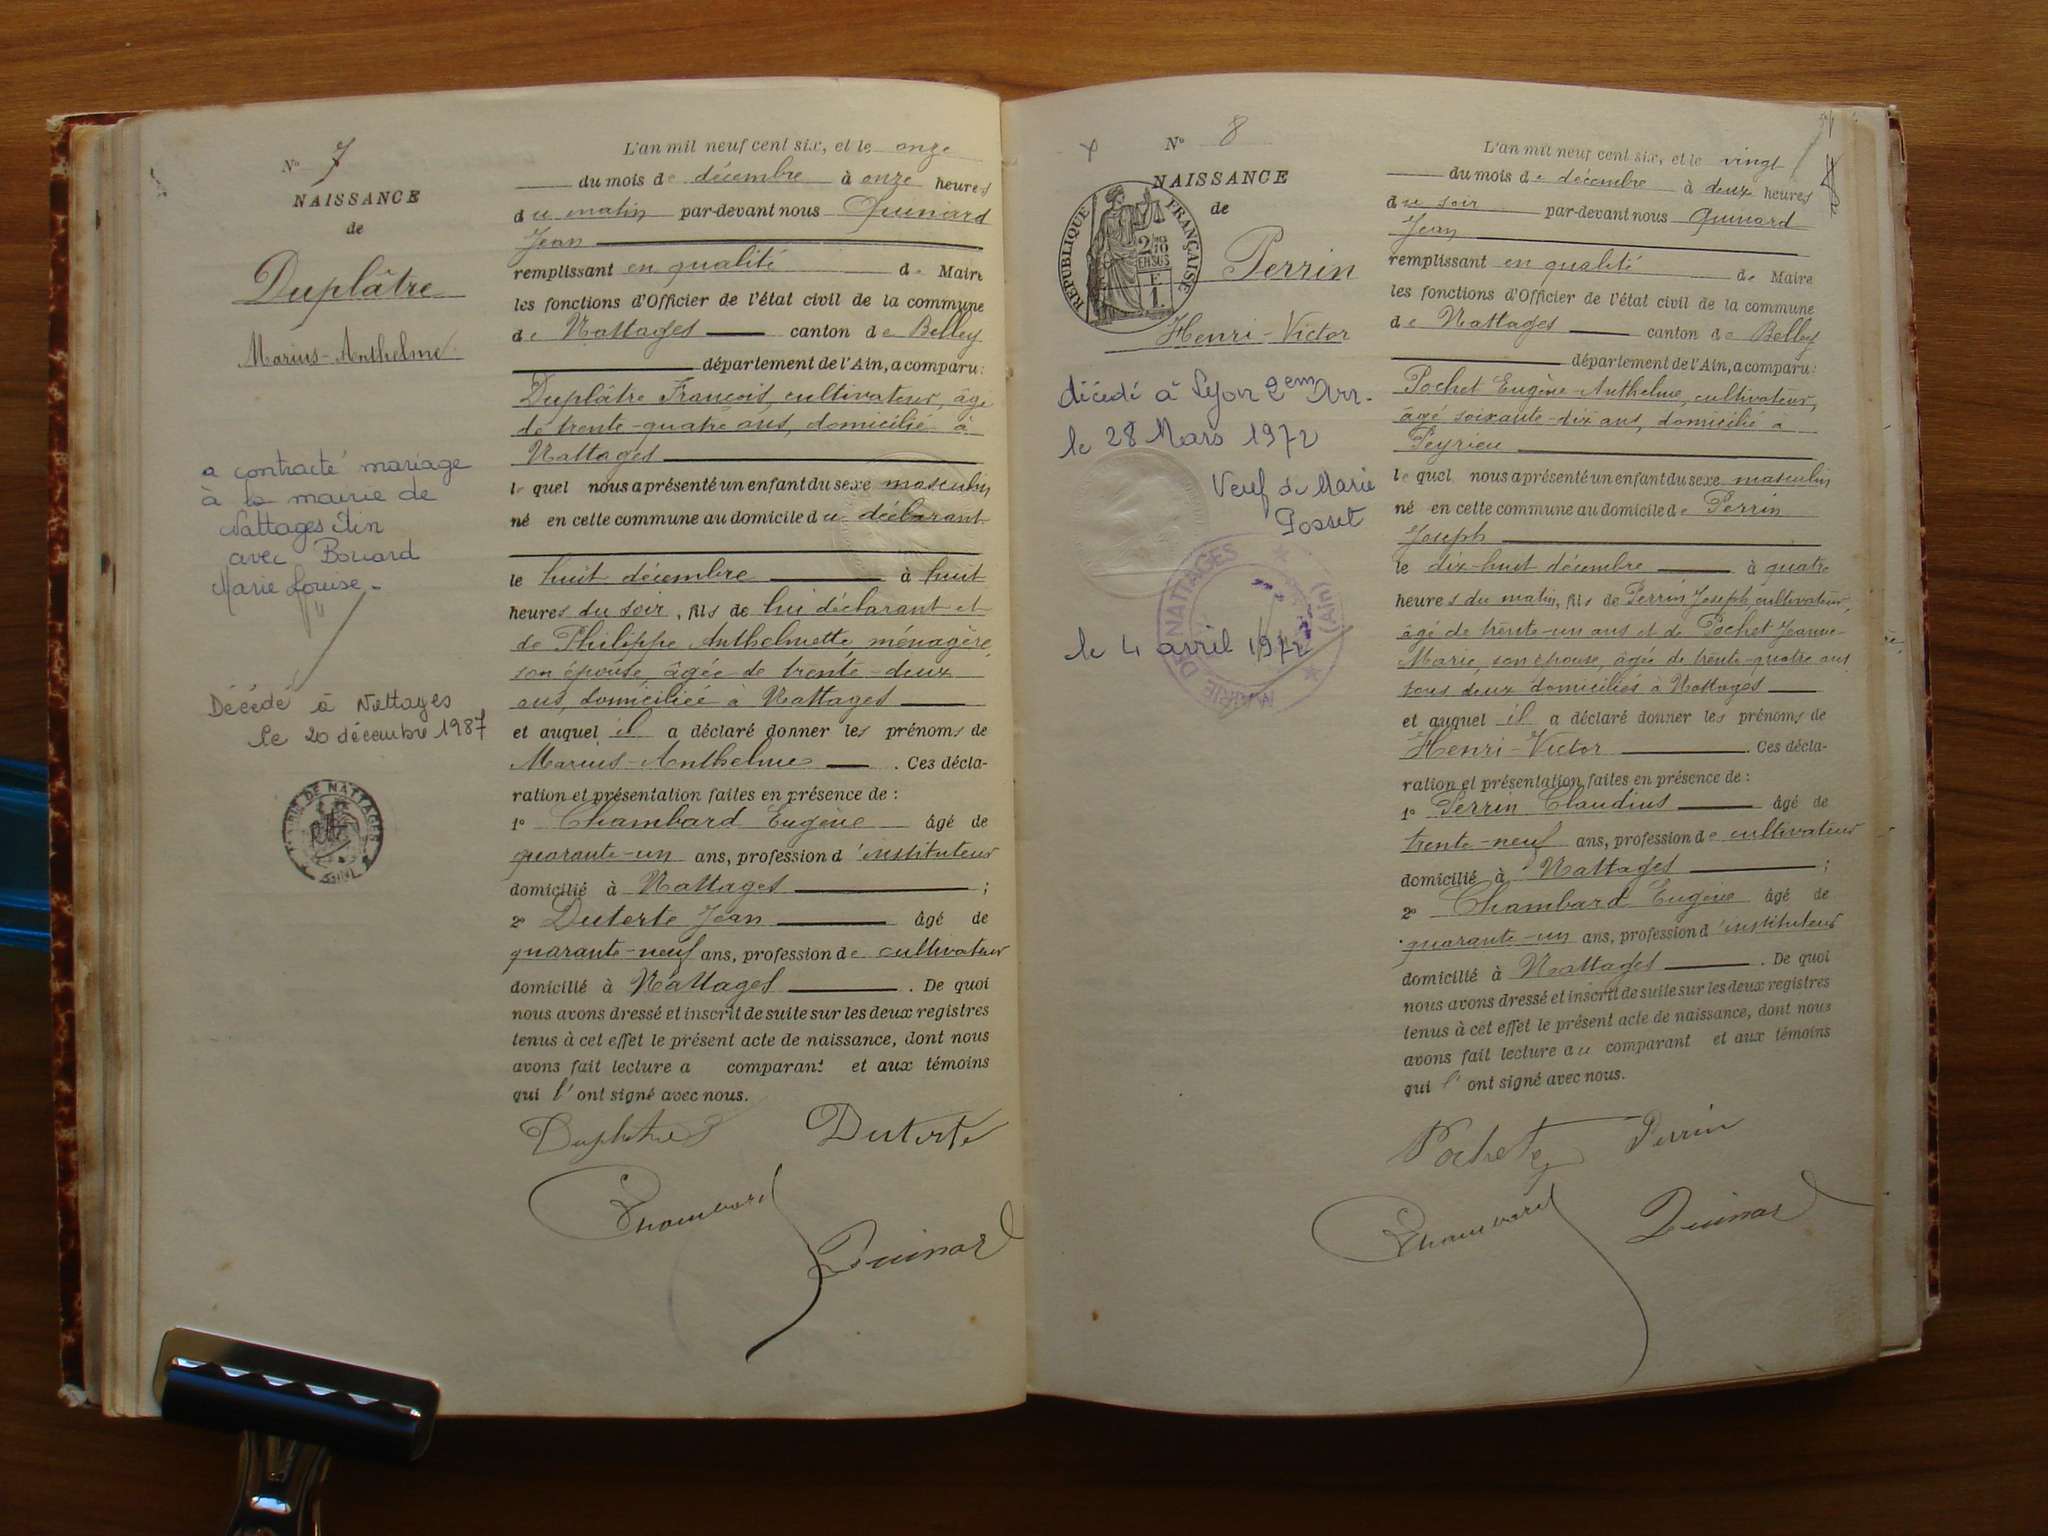 N° 7
NAISSANCE
de
Duplâtre
Marius-Anthelme
a contracté mariage
à la mairie de
Nattages Ain
avec Bouard
Marie Louise.
Décédé à Nattages
le 20 décembre 1987
MAIRIE DE NATTAGES
L'an mil neuf cent six, et le onze
du mois de décembre à onze heures
du matin par-devant nous Quinard
Jean
remplissant en qualité de Maire
les fonctions d'Officier de l'état civil de la commune
de Nattages canton de Belley
département de l'Ain, a comparu:
Duplâtre François, cultivateur, âgé
de trente-quatre ans, domicilié à
Nattages
lequel nous a présenté un enfant du sexe masculin
né en cette commune au domicile du déclarant
le huit décembre à huit
heures du soir, fils de lui déclarant et
de Philippe Anthelmette, ménagère,
son épouse, âgée de trente-deux
ans, domiciliée à Nattages
et auquel il a déclaré donner les prénoms de
Marius-Anthelme. Ces décla-
ration et présentation faites en présence de:
1° Chambard Eugène âgé de
quarante-un ans, profession d'instituteur
domicilié à Nattages;
2° Duterte Jean âgé de
quarante-neuf ans, profession de cultivateur
domicilié à Nattages. De quoi
nous avons dressé et inscrit de suite sur les deux registres
tenus à cet effet le présent acte de naissance, dont nous
avons fait lecture a comparant et aux témoins
qui l'ont signé avec nous.
Duplâtre Duterte
Chambard
Quinard
N° 8
NAISSANCE
de
RÉPUBLIQUE FRANÇAISE
Perrin
Henri-Victor
décédé à Lyon 2em Arr.
le 28 Mars 1972
Veuf de Marie
Posset
le 4 avril 1972
MAIRIE DE NATTAGES (Ain)
L'an mil neuf cent six, et le vingt
du mois de décembre à deux heures
du soir par-devant nous Quinard
Jean
remplissant en qualité de Maire
les fonctions d'Officier de l'état civil de la commune
de Nattages canton de Belley
département de l'Ain, a comparu:
Pochet Eugène-Anthelme, cultivateur,
âgé soixante-dix ans, domicilié à
Peyrieu
lequel nous a présenté un enfant du sexe masculin
né en cette commune au domicile de Perrin
Joseph
le dix-huit décembre à quatre
heures du matin, fils de Perrin Joseph, cultivateur,
âgé de trente-un ans et de Pochet Jeanne-
Marie, son épouse, âgée de trente-quatre ans
tous deux domiciliés à Nattages
et auquel il a déclaré donner les prénoms de
Henri-Victor. Ces décla-
ration et présentation faites en présence de:
1° Perrin Claudius âgé de
trente-neuf ans, profession de cultivateur
domicilié à Nattages;
2° Chambard Eugène âgé de
quarante-un ans, profession d'instituteur
domicilié à Nattages. De quoi
nous avons dressé et inscrit de suite sur les deux registres
tenus à cet effet le présent acte de naissance, dont nous
avons fait lecture au comparant et aux témoins
qui l'ont signé avec nous.
Pochet Perrin
Chambard Quinard